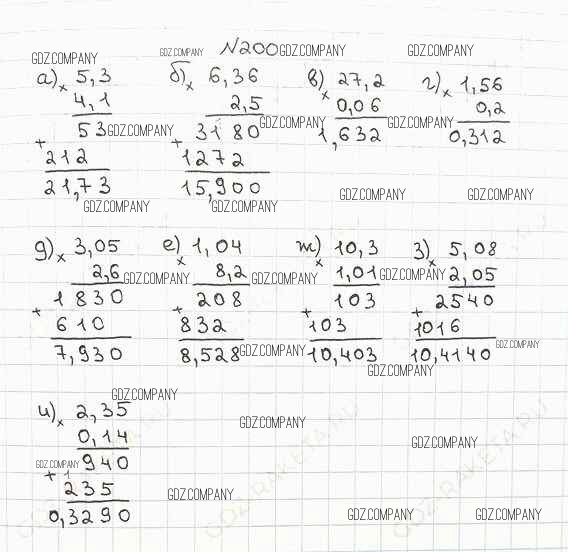 N200
GDZ.COMPANY GDZ.COMPANY GDZ.COMPANY GDZ.COMPANY
а) × 5,3 б) × 6,36 в) × 27,2 г) × 1,56
4,1 2,5 0,06 0,2
53 GDZ.COMPANY 3180 GDZ.COMPANY 1,632 GDZ.COMPANY 0,312
+ 212 + 1272
21,73 15,900 GDZ.COMPANY GDZ.COMPANY
GDZ.COMPANY GDZ.COMPANY
д) × 3,05 е) × 1,04 ж) × 10,3 з) × 5,08
2,6 GDZ.COMPANY 8,2 GDZ.COMPANY 1,01 GDZ.COMPANY 2,05
1830 208 103 2540
+ 610 + 832 + 103 + 1016
7,930 8,528 GDZ.COMPANY 10,403 10,4140 GDZ.COMPANY
GDZ.COMPANY
GDZ.COMPANY
и) × 2,35 GDZ.COMPANY
0,14 GDZ.COMPANY
GDZ.COMPANY 940
+ 1
235 GDZ.COMPANY
0,3290 GDZ.COMPANY GDZ.COMPANY
GDZ-RAKETA.RU GDZ-RAKETA.RU